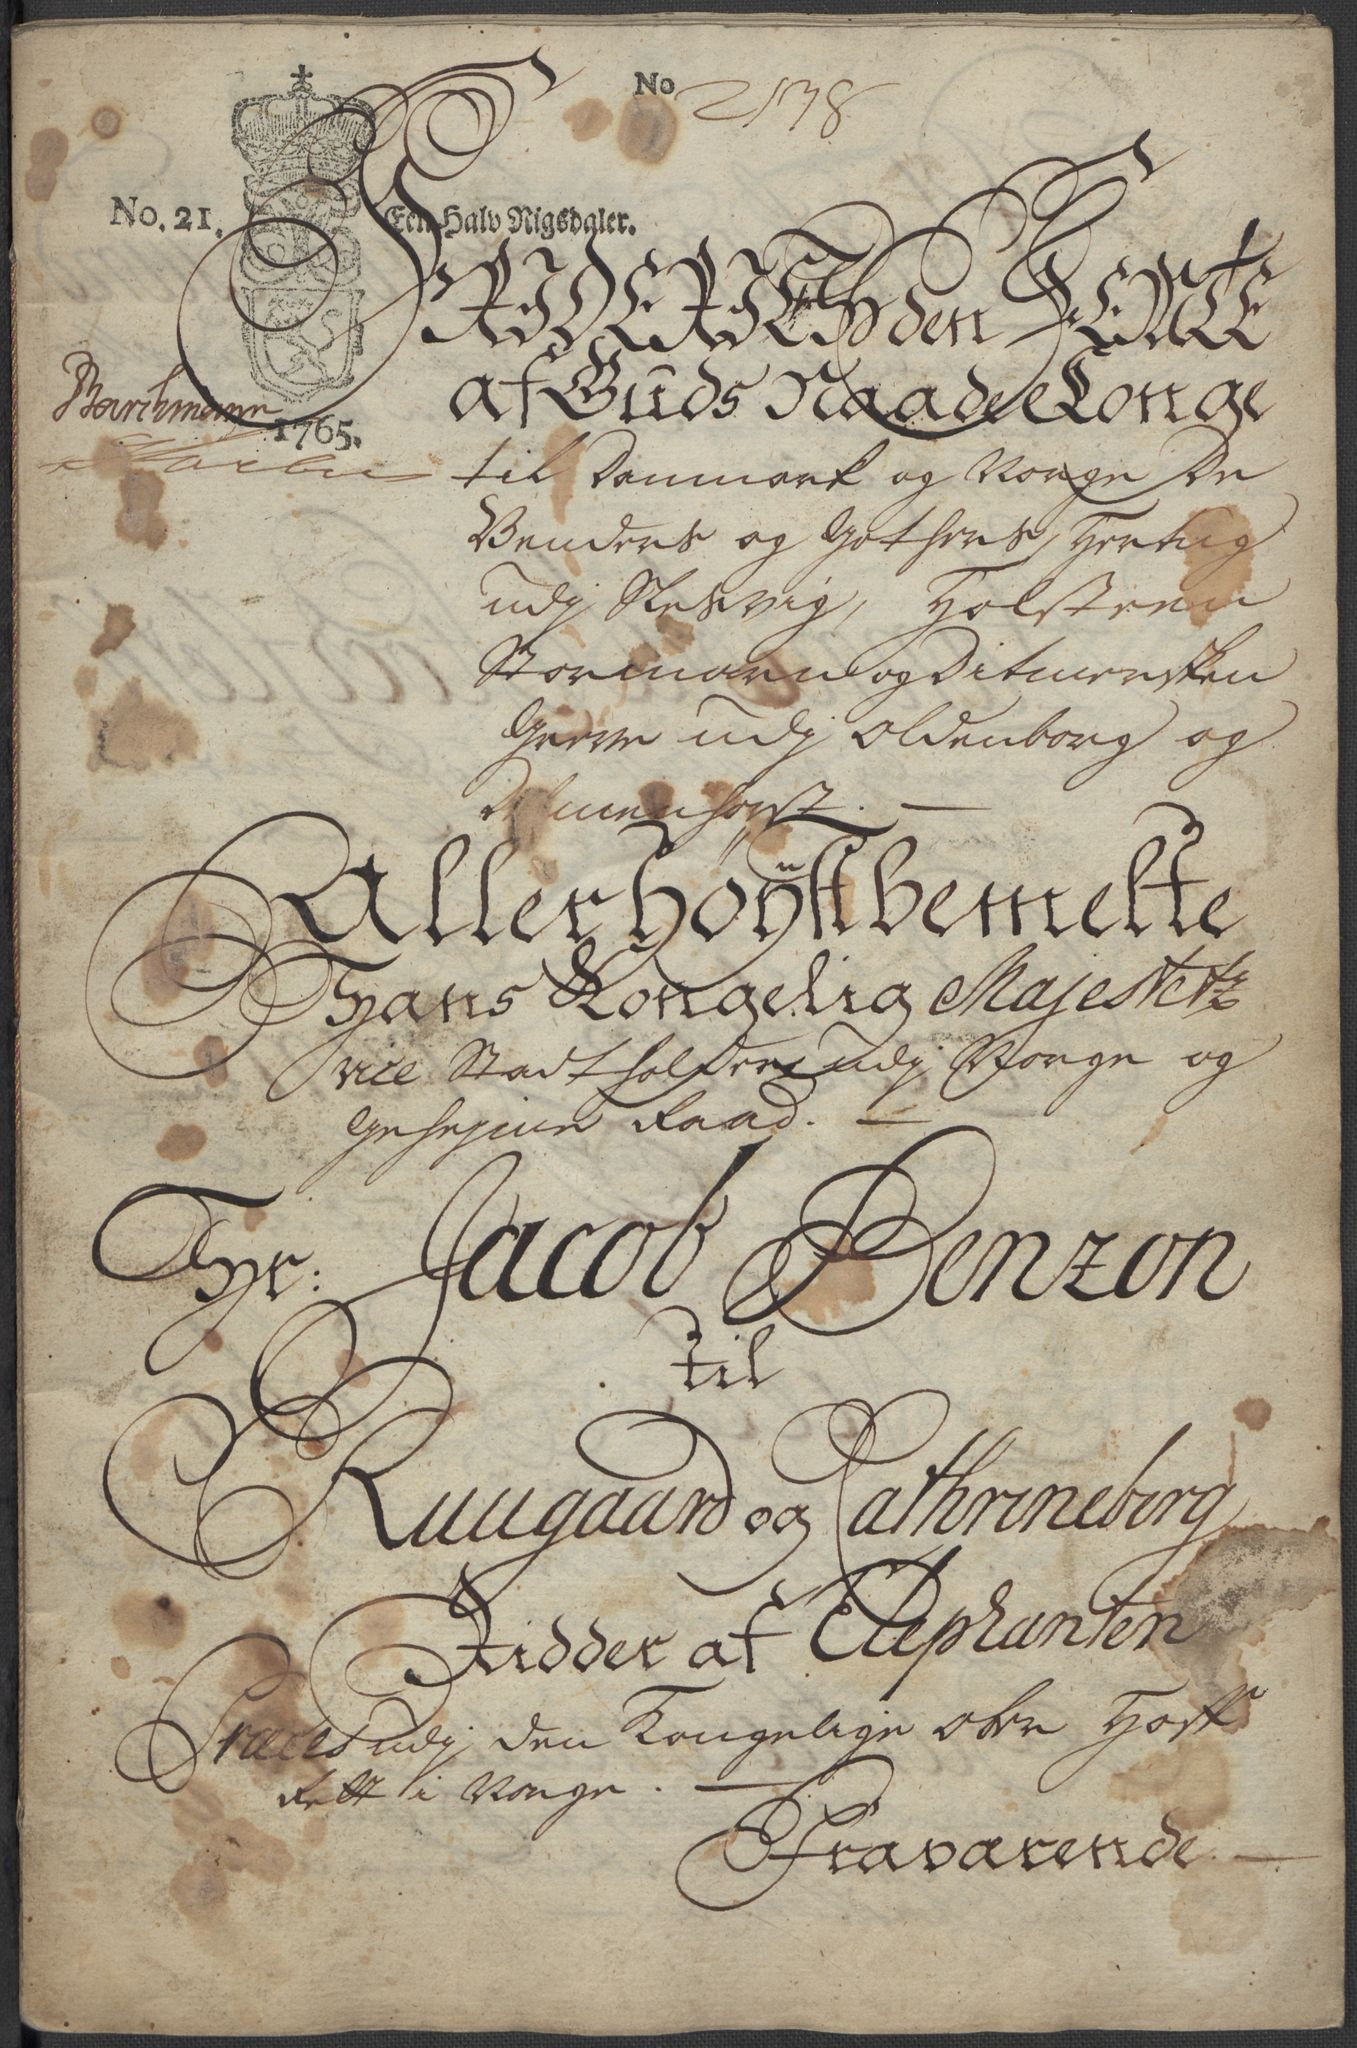 No 2178
No. 21. Een Halv Rigsdaler.
FRIDERICH den FEMTE
af Guds Naade Konge
til Danmark og Norge De
Venders og Gothers, Hertug
udj Slesvig, Holsteen
Stormarn og Ditmersken
Greve udj Oldenborg og
Delmenhorst. —
Barchmann
1765.
Allerhöÿstbemelte
Hans Kongelig Majestets
vice Stadtholder udj Norge og
Geheime Raad. —
Hr: Jacob Benzon
til
Ruugaard og Cathrineborg
Ridder af Elephanten
Præces udj den Kongelige Ober Hoff
Rett i Norge. —
Fraværende —